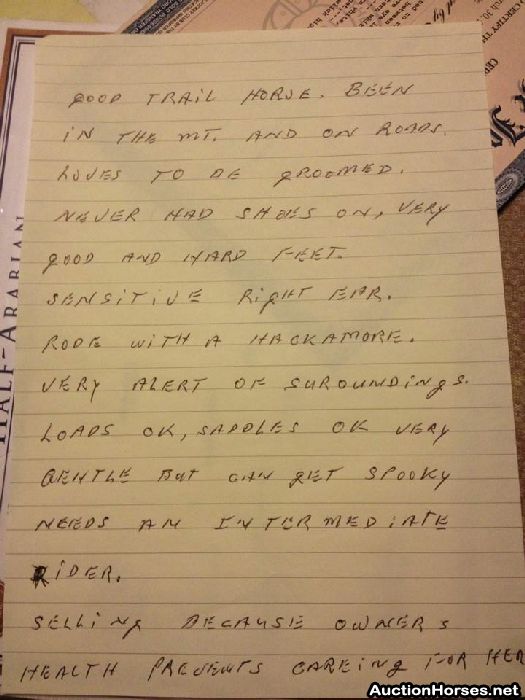 GOOD TRAIL HORSE. BEEN
IN THE MT. AND ON ROADS.
LOVES TO BE GROOMED.
NEVER HAD SHOES ON, VERY
GOOD AND HARD FEET.
SENSITIVE RIGHT EAR.
RODE WITH A HACKAMORE.
VERY ALERT OF SUROUNDINGS.
LOADS OK, SADDLES OK VERY
GENTLE BUT CAN GET SPOOKY
NEEDS AN INTERMEDIATE
RIDER.
SELLING BECAUSE OWNERS
HEALTH PREVENTS CAREING FOR HER
HALF-ARABIAN
AuctionHorses.net